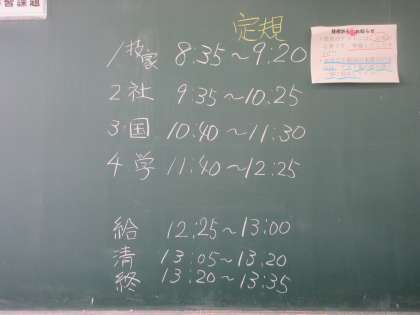 習課題
定規
1 技家 8:35～9:20
2 社 9:35～10:25
3 国 10:40～11:30
4 学 11:40～12:25
給 12:25～13:00
清 13:05～13:20
終 13:20～13:35